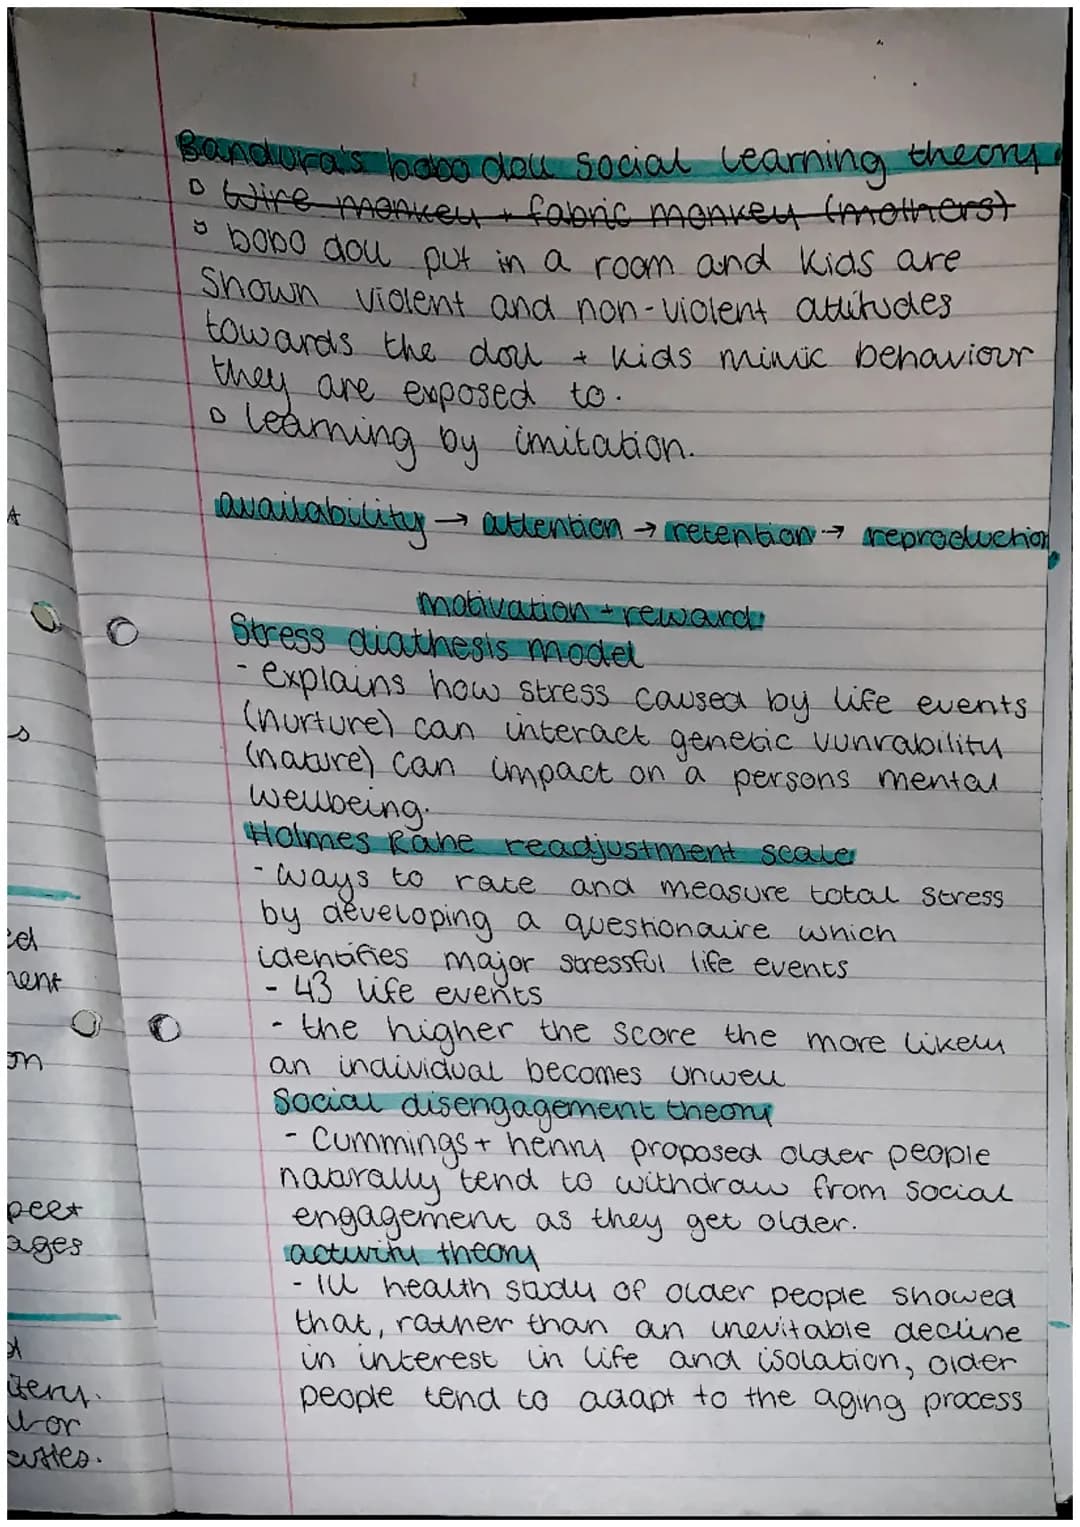 Bandura's bobo doll social learning theory.
wire monkey + fabric monkey (mothers)
bobo doll put in a room and kids are
shown violent and non-violent attitudes
towards the doll + kids mimic behaviour
they are exposed to.
learning by imitation.
availability → attention → retention → reproduction
motivation + reward
Stress diathesis model
- explains how stress caused by life events
(nurture) can interact genetic vunrability
(nature) can impact on a persons mental
wellbeing.
Holmes Rahe readjustment scale
- ways to rate and measure total stress
by developing a questionaire which
identifies major stressful life events
- 43 life events
- the higher the score the more likely
an individual becomes unwell
Social disengagement theory
- Cummings + henry proposed older people
naturally tend to withdraw from social
engagement as they get older.
activity theory
- Ill health study of older people showed
that, rather than an inevitable decline
in interest in life and isolation, older
people tend to adapt to the aging process
ed
ment
on
peet
ages